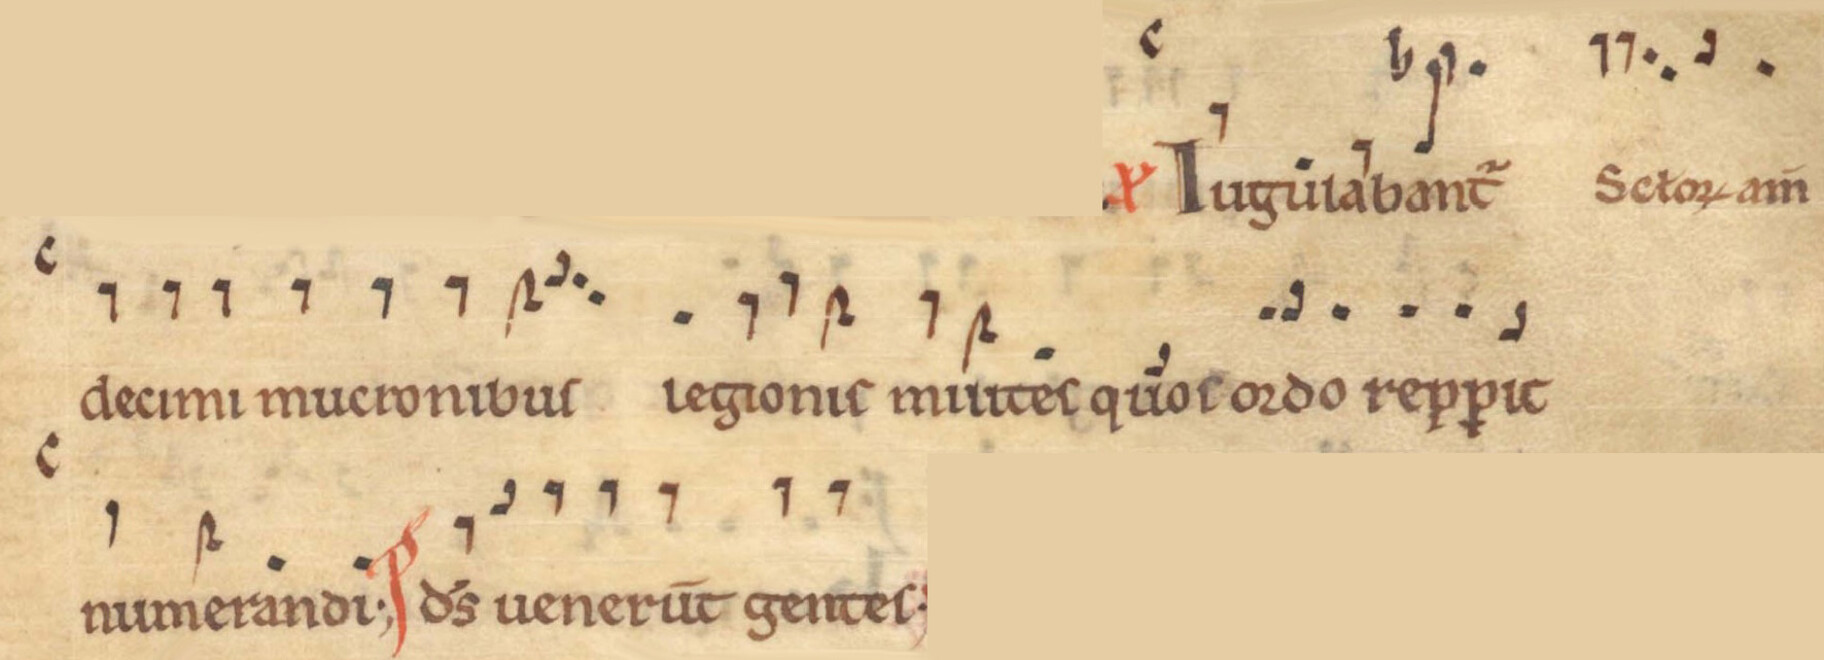 Iugulabant̃ Sctoꝝ am̄
decimi mucronibus legionis milites quos ordo repꝑit
numerandi; P ds̄ uenerūt gentes;